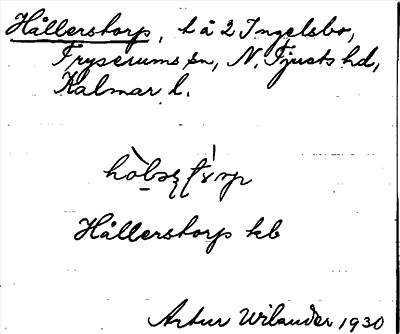 Hållerstorp, l å 2 Ingelsbo,
Fryserums sn, N. Tjusts hd,
Kalmar l.
Hållerstorp kb
Artur Wilander 1930